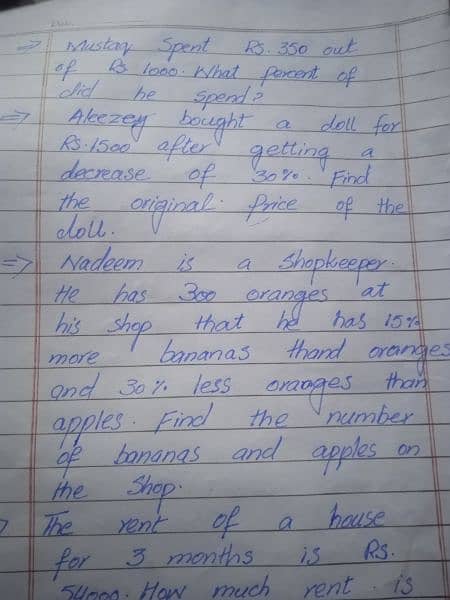 => Mustaq Spent Rs. 350 out
of Rs 1000. What percent of
did he spend?
=> Aleezey bought a doll for
Rs.1500 after getting a
decrease of 30%. Find
the original price of the
doll.
=> Nadeem is a Shopkeeper.
He has 300 oranges at
his shop that he has 15%
more bananas thand oranges
and 30% less oranges than
apples. Find the number
of bananas and apples on
the Shop.
The rent of a house
for 3 months is Rs.
54000. How much rent is